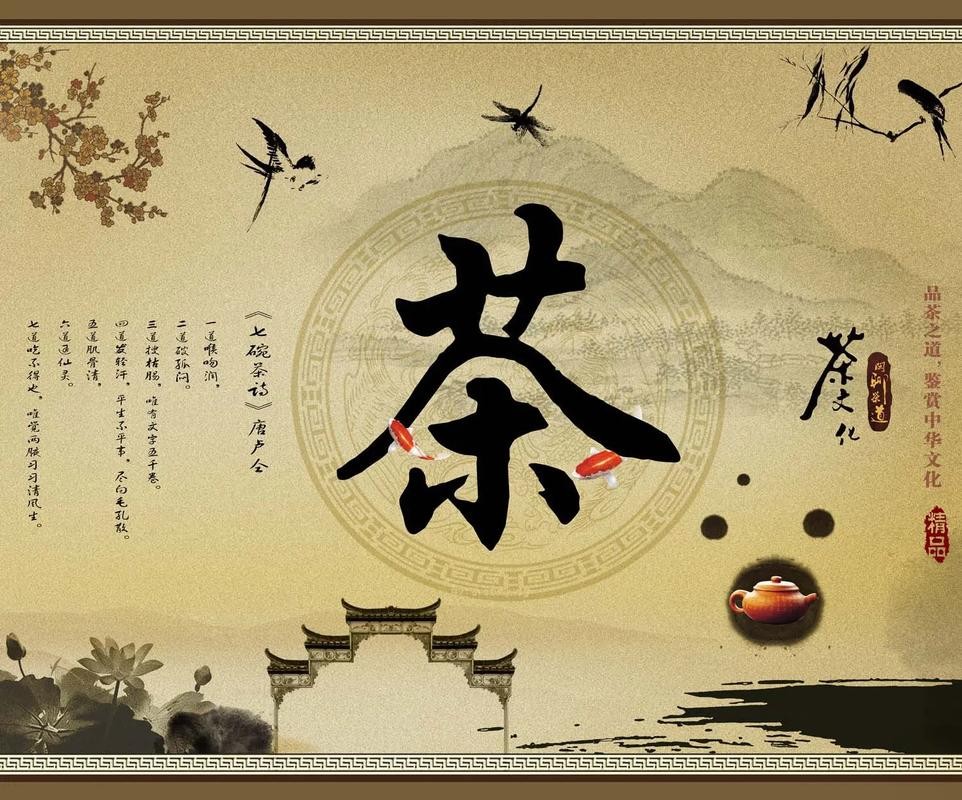 品茶之道，鉴赏中华文化
精品
茶文化
闲聊茶道
茶
《七碗茶诗》唐 卢仝
一道喉吻润，
二道破孤闷。
三道搜枯肠，唯有文字五千卷。
四道发轻汗，平生不平事，尽向毛孔散。
五道肌骨清，
六道通仙灵。
七道吃不得也，唯觉两腋习习清风生。